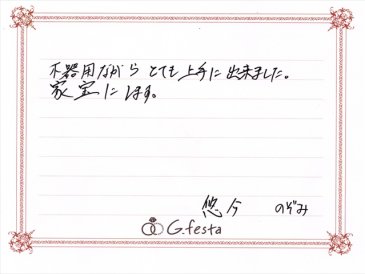 不器用ながら とても上手に出来ました。
家宝にします。
悠介 のぞみ
G.festa